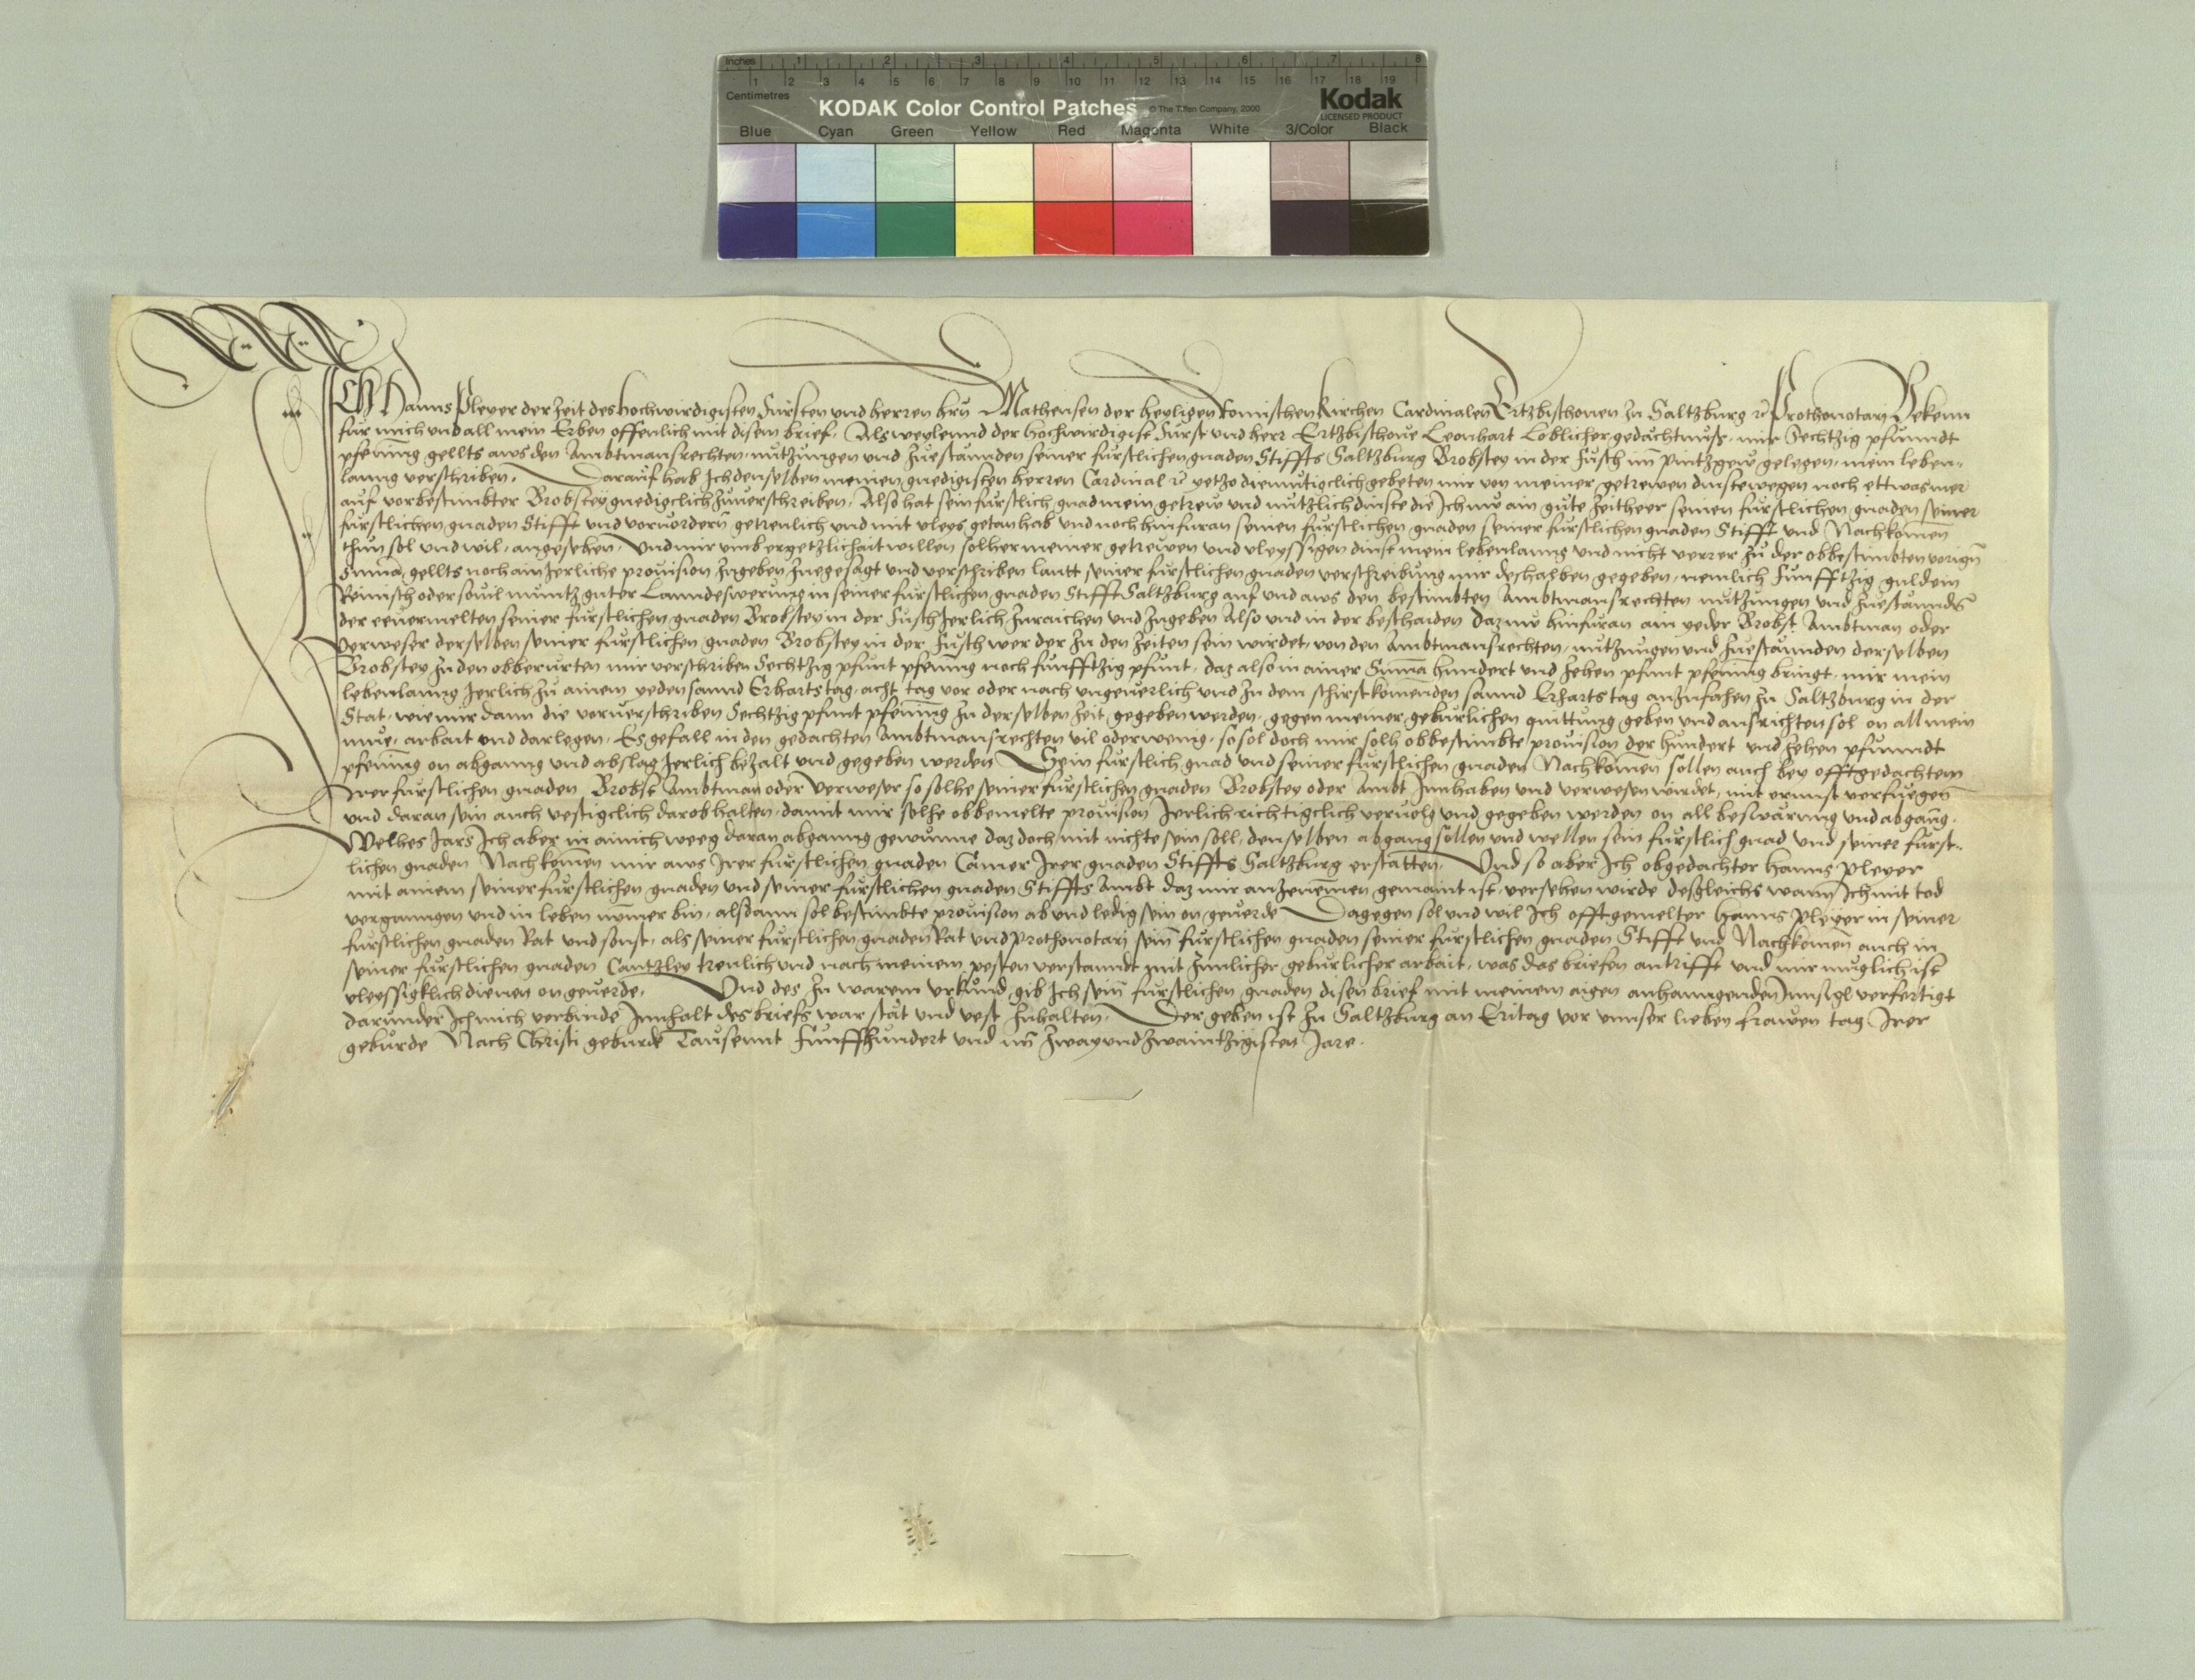 Inches 1 2 3 4 5 6 7 8
1 2 3 4 5 6 7 8 9 10 11 12 13 14 15 16 17 18 19
Centimetres
KODAK Color Control Patches © The Tiffen Company, 2000 Kodak
LICENSED PRODUCT
Blue Cyan Green Yellow Red Magenta White 3/Color Black
ICH Hanns Pleyer der Zeit des hochwirdigisten Fürsten und herren hern Matheusen der heyligen Romischen Kirchen Cardinalen Ertzbischoven zu Saltzburg Prothonotari Bekenn
für mich und all mein Erben offenlich mit disem brief. Als weylennd der hochwirdigist Fürst und herr Ertzbischove Leonhart Loblicher gedächtnuss, mir Sechtzig pfunndt
pfenning gellts aws den Ambtmansrechten, nutzungen und Zuestannden seiner fürstlichen gnaden Stiffts Saltzburg Brobstey in der Fusch im Pintzgew gelegen, mein leben-
lanng verschriben. Darauf hab Ich denselben meinen gnedigisten herren Cardinal yetzo diemutigclich gebeten mir von meiner getrewen dinst wegen noch ettwas mer
auf vorbestimbter Brobstey gnedigclich zuverschreiben, Also hat sein fürstlich gnad mein getrew und nützlich dinste die Ich nw ain güte Zeitheer seinen fürstlichen gnaden seiner
fürstlichen gnaden Stifft und vorvordern getrewlich und mit vleys getan hab und noch hinfüran seinen fürstlichen gnaden seiner fürstlichen gnaden Stifft und Nachkomen
thun sol und wil, angesehen, Und mir umb ergetzlichait willen solher meiner getrewen und vleyssigen dinst mein lebenlanng und nicht verrer zu der obbestimbten vorign
Suma gellts noch ain Jerliche provision zugeben zuegesagt und verschriben lautt seiner fürstlichen gnaden verschreibung mir deshalben gegeben, nemlich Funfftzig guldein
Reinisch oder sovil müntz guter Lanndeswerung in seiner fürstlichen gnaden Stifft Saltzburg auf und aws den bestimbten Ambtmansrechten nutzungen und Zuestannden
der eevermelten seiner fürstlichen gnaden Brobstey in der Fusch Jerlich zuraichen und zugeben Also und in der beschaiden daz nw hinfüran ain yeder Brobst Ambtman oder
verweser derselben seiner fürstlichen gnaden Brobstey in der Fusch wer der zu den Zeiten sein wirdet, von den Ambtmansrechten, nutzungen und Zuestannden derselben
Brobstey zu den obberürten mir verschriben Sechtzig pfunt pfening noch funfftzig pfunt, daz also in ainer Suma hundert und zehen pfunt pfening bringt, mir mein
lebenlanng Jerlich zu ainem yeden sannd Erhartstag, acht tag vor oder nach ungeverlich und zu dem schirstkomenden sannd Erhartstag anzufahen zu Saltzburg in der
Stat, wie mir dann die vorverschriben Sechtzig pfunt pfening zu derselben Zeit gegeben werden, gegen meiner gebürlichen quittung geben und ausrichten sol on all mein
müe, arbait und darlegen, Es gefall in den gedachten Ambtmansrechten vil oder wenig, so sol doch mir solh obbestimbte provision der hundert und zehen pfunndt
pfening on abganng und abslag Jerlich bezalt und gegeben werden Sein fürstlich gnad und seiner fürstlichen gnaden Nachkomen sollen auch bey offtgedachtem
Irer fürstlichen gnaden Brobst Ambtman oder verweser so solhe seiner fürstlichen gnaden Brobstey oder Ambt Innhaben und verwesen wirdet, mit ernnst verfuegen
und daran sein auch vestigclich darob halten, damit mir solhe obbemelte provision Jerlich richtigclich vervolg und gegeben werden on all beswärung und abgang.
Welhes Jars Ich aber in ainich weeg daran abganng gewunne daz doch mit nichte sein soll, denselben abgang sollen und wellen sein fürstlich gnad und seiner fürst-
lichen gnaden Nachkomen mir aws Irer fürstlichen gnaden Camer Irer gnaden Stiffts Saltzburg erstatten. Und so aber Ich obgedachter Hanns Pleyer
mit ainem seiner fürstlichen gnaden und seiner fürstlichen gnaden Stiffts Ambt daz mir anzenemen gemaint ist, versehen wirde desgleichs wann Ich mit tod
vergangen und in leben nymer bin, alsdann sol bestimbte provision ab und ledig sein on geverde Dagegen sol und wil Ich offtgemelter Hanns Pleyer in seiner
fürstlichen gnaden Rat und sonst, als seiner fürstlichen gnaden Rat und Prothonotari sein fürstlichen gnaden seiner fürstlichen gnaden Stifft und Nachkomen auch in
seiner fürstlichen gnaden Cantzley trewlich und nach meinem pesten verstanndt mit zimlicher gebürlicher arbait, was das briefen antrifft und mir muglich ist
vleyssigklich dienen on geverde. Und des zu warem urkund gib Ich sein fürstlichen gnaden disen brief mit meinem aigen anhanngenden Innsigl verfertigt
darunder Ich mich verbinde Innhalt des briefs war stät und vest zuhalten. Der geben ist zu Saltzburg an Eritag vor unnser lieben frawen tag Irer
geburde Nach Christi geburde Tausennt Funffhundert und im Zwayundzwaintzigisten Jare.